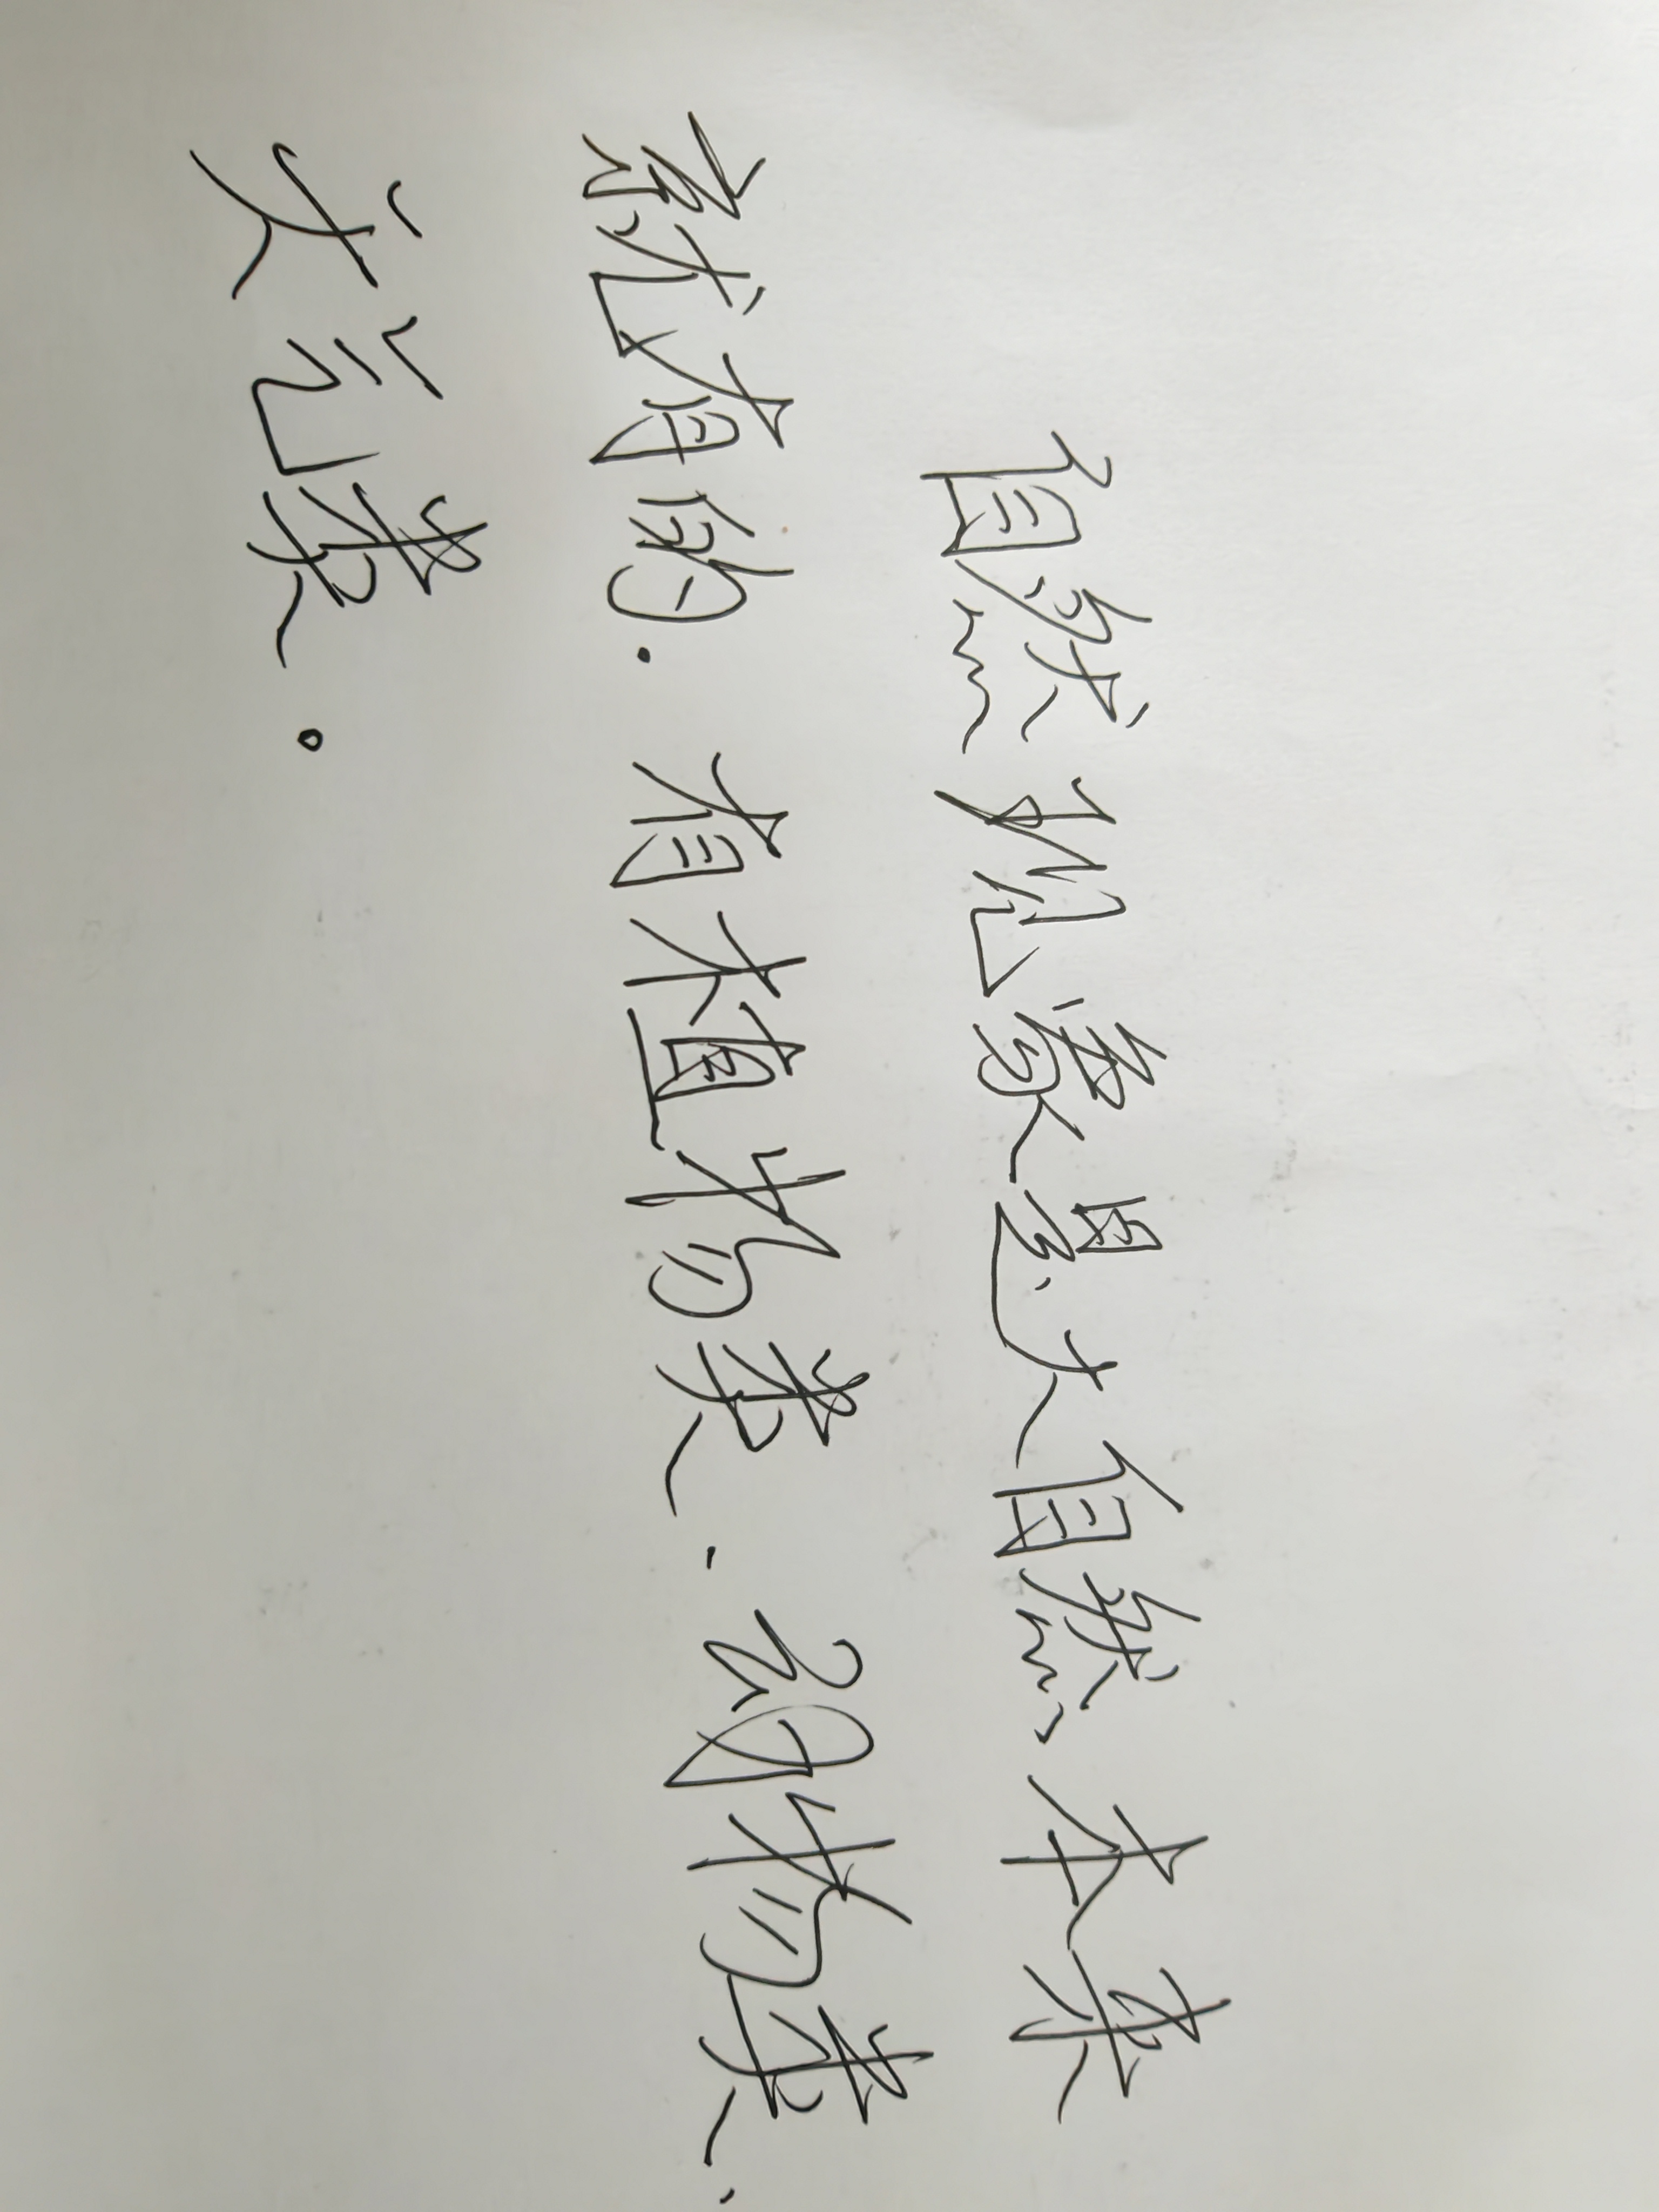 自然现象是大自然本来
就有的.有植物类.动物类.
天气类.